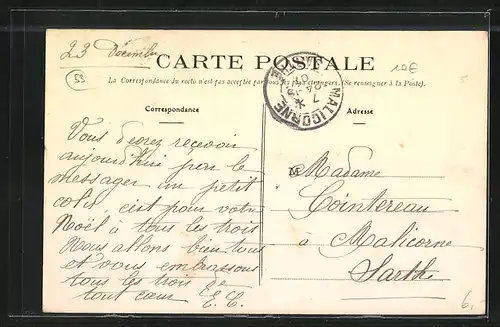 23 Décembre
CARTE POSTALE
53
10€
La Correspondance du recto n'est pas acceptée par tous les pays étrangers. (Se renseigner à la Poste).
MALICORNE
7
24-12
07
Correspondance
Adresse
Vous devez recevoir
aujourd'hui par le
messager un petit
colis, c'est pour votre
Noël à tous les trois
Nous allons bien tous
et vous embrassons
tous les trois de
tout cœur E. C.
M
Madame
Cointereau
à Malicorne
Sarthe
6,-